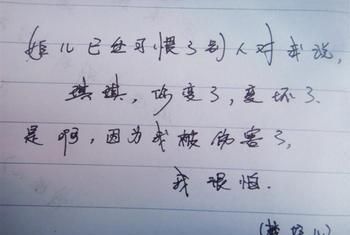 姐儿已经习惯了别人对我说,
琪琪,你变了,变坏了.
是啊,因为我被伤害了,
我很怕.